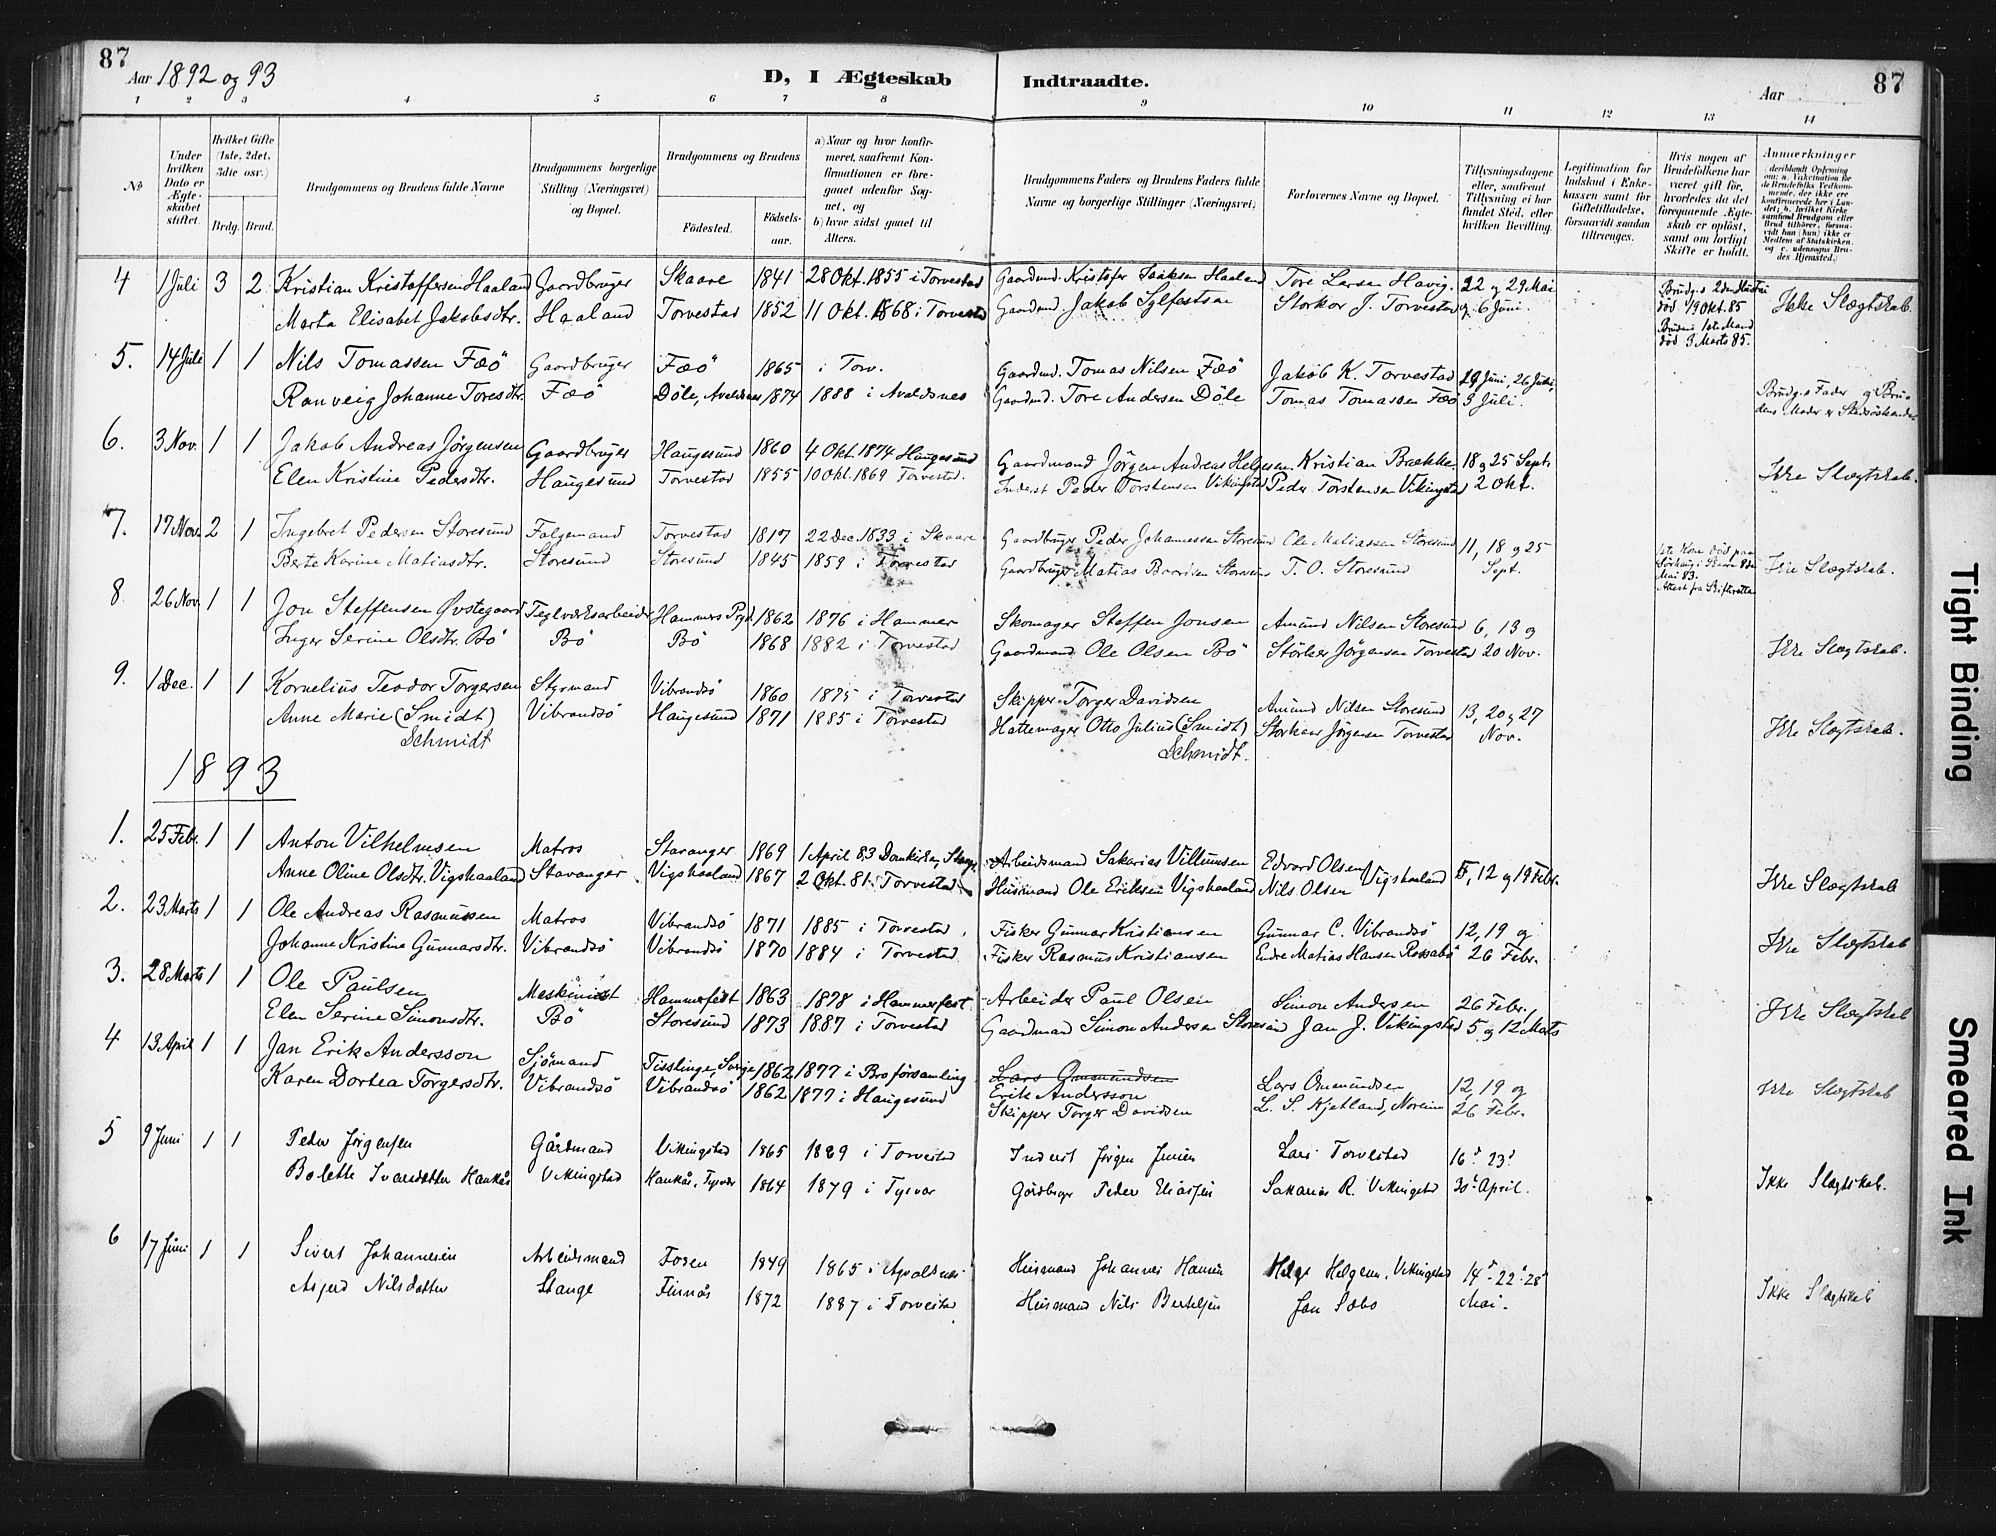 87
Aar 1892 og 93
D, I Ægteskab Indtraadte.
Aar
87
1 2 3 4 5 6 7 8 9 10 11 12 13 14
No
Under hvilken Dato er Ægteskabet stiftet.
Hvilket Gifte (1ste, 2det, 3die osv.)
Brdg. Brud.
Brudgommens og Brudens fulde Navne
Brudgommens borgerlige Stilling (Næringsvei) og Bopæl.
Brudgommens og Brudens
Fødested.
Fødselsaar.
a) Naar og hvor konfirmeret, saafremt Konfirmationen er foregaaet udenfor Sognet, og
b) hvor sidst gaaet til Alters.
Brudgommens Faders og Brudens Faders fulde Navne og borgerlige Stillinger (Næringsvei)
Forlovernes Navne og Bopæl.
Tillysningsdagene eller, saafremt Tillysning ei har fundet Sted, efter hvilken Bevilling.
Legitimation for Indskud i Enkekassen samt for Giftetilladelse, forsaavidt saadan tiltrænges.
Hvis nogen af Brudefolkene har været gift før, hvorledes da det foregaaende Ægteskab er opløst, samt om lovligt Skifte er holdt.
Anmærkninger
4 1 Juli 3 2 Kristian Kristoffersen Haaland Gaardbruger Skaare 1841 28 Okt. 1855 i Torvestad Gaardmd. Kristofer Isaksen Haaland Tore Larsen Havig. 22 og 29 Mai
Marta Elisabet Jakobsdtr. Haaland Torvestad 1852 11 Okt. 1868 i Torvestad Gaardmd. Jakob Sylfestsen Storkor J. Torvestad og 6 Juni.
Brudg.s 2den Hustru død 19 Okt. 85
Brudens 1ste Mand død 3 Marts 85.
Ikke Slægtskab.
5. 14 Juli 1 1 Nils Tomassen Fæö Gaardbruger Fæö 1865 i Torv. Gaardmd. Tomas Nilsen Fæö Jakob K. Torvestad 19 Juni, 26 Juni
Ranveig Johanne Toresdtr. Fæö Döle, Avaldsnes 1874 1888 i Avaldsnes Gaardmd. Tore Andersen Döle Tomas Tomassen Fæö 3 Juli.
Brudg.s Fader og Brudens Moder er
6. 3 Nov. 1 1 Jakob Andreas Jørgensen Gaardbruger Haugesund 1860 4 Okt. 1874 Haugesund Gaardmand Jörgen Andreas Helgesen Kristian Brække 18 og 25 Sept.
Elen Kristine Pedersdtr. Haugesund Torvestad 1855 10 Okt. 1869 Torvestad. Inderst Peder Torstensen Vikingstad Peder Torstensen Vikingstad 2 Okt.
Ikke Slægtskab.
7. 17 Nov. 2 1 Ingebret Pedersen Storesund Følgemand Torvestad 1817 22 Dec. 1833 i Skaare Gaardbruger Peder Johannessen Storesund Ole Matiassen Storesund 11, 18 og 25
Berte Karine Matiasdtr. Storesund Storesund 1845 1859 i Torvestad Gaardbruger Matias Storesund T. O. Storesund Sept.
Mai 83.
Attest fra Skifteretten
Ikke Slægtskab.
8 26 Nov. 1 1 Jon Steffensen Øvstegaard Teglværksarbeider Hammers Pgd. 1862 1876 i Hammer Skomager Steffen Jonsen Amund Nilsen Storesund 6, 13 og
Inger Serine Olsdtr. Bö Bö Bö 1868 1882 i Torvestad Gaardmand Ole Olsen Bö Störker Jørgensen Torvestad 20 Nov.
Ikke Slægtskab.
9. 1 Dec. 1 1 Kornelius Teodor Torgersen Styrmand Vibrandsö 1860 1875 i Torvestad Skipper Torger Davidsen Amund Nilsen Storesund 13, 20 og 27
Anne Marie (Smidt) Vibrandsö Haugesund 1871 1885 i Torvestad Hattemager Otto Julius (Smidt) Storker Jørgensen Torvestad Nov.
Schmidt Schmidt.
Ikke Slægtskab.
1893
1. 25 Febr. 1 1 Anton Vilhelmsen Matros Stavanger 1869 1 April 83 Domkirken, Stavgr. Arbeidsmand Sakarias Villumsen Edvard Olsen
Anne Oline Olsdtr. Vigshaaland Stavanger Vigshaaland 1867 2 Okt. 81. Torvestad Husmand Ole Eriksen Vigshaaland Nils Olsen Vigshaaland 5, 12 og 19 Febr.
Ikke Slægtskab
2. 23 Marts 1 1 Ole Andreas Rasmussen Matros Vibrandsö 1871 1885 i Torvestad. Fisker Gunnar Kristiansen Gunnar C. Vibrandsö 12, 19 og
Johanne Kristine Gunnarsdtr. Vibrandsö Vibrandsö 1870 1884 i Torvestad. Fisker Rasmus Kristiansen Endre Matias Hansen Røksabö 26 Febr.
Ikke Slægtskab
3. 28 Marts 1 1 Ole Paulsen Maskinist Hammerfest 1863 1878 i Hammerfest Arbeider Paul Olsen Simon Andersen 26 Febr.,
Elen Serine Simonsdtr. Bö Storesund 1873 1887 i Torvestad Gaardmand Simon Andersen Storesund Jan J. Vikingstad 5 og 12 Marts
Ikke Slægtskab
4 13 April 1 1 Jan Erik Andersson Sjömand Tisslinge, Sverige 1862 1877 i Broförsamling Lars Gummundsen Lars Ommundsen 12, 19 og
Karen Dortea Torgersdtr. Vibrandsö Vibrandsö 1862 1877 i Haugesund Erik Andersson L. S. Kjetland, Noreim 26 Febr.
Skipper Torger Davidsen
Ikke Slægtskab
5 9 Juni 1 1 Peder Jørgensen Gårdmand Vikingstad 1865 1889 i Torvestad Inderst Jørgen Jensen Lars Torvestad 16' 23'
Bolette Ivarsdatter Haukås Vikingstad Haukås, Tysvær 1864 1879 i Tysvær Gårdbrger Peder Eliassen Sakarias R. Vikingstad 30' April.
Ikke Slægtskab.
6 17 Juni 1 1 Sivert Johannesen Arbeidsmand Fosen 1849 1865 i Avaldsnes Husmand Johannes Hansen Helge Helgesen, Vikingstad 14'-22'-28'
Asgjerd Nilsdatter Stange Finnås 1872 1887 i Torvestad Husmand Nils Bertelsen Jon Sæbø Mai.
Ikke Slægtskab
Tight Binding
Smeared Ink